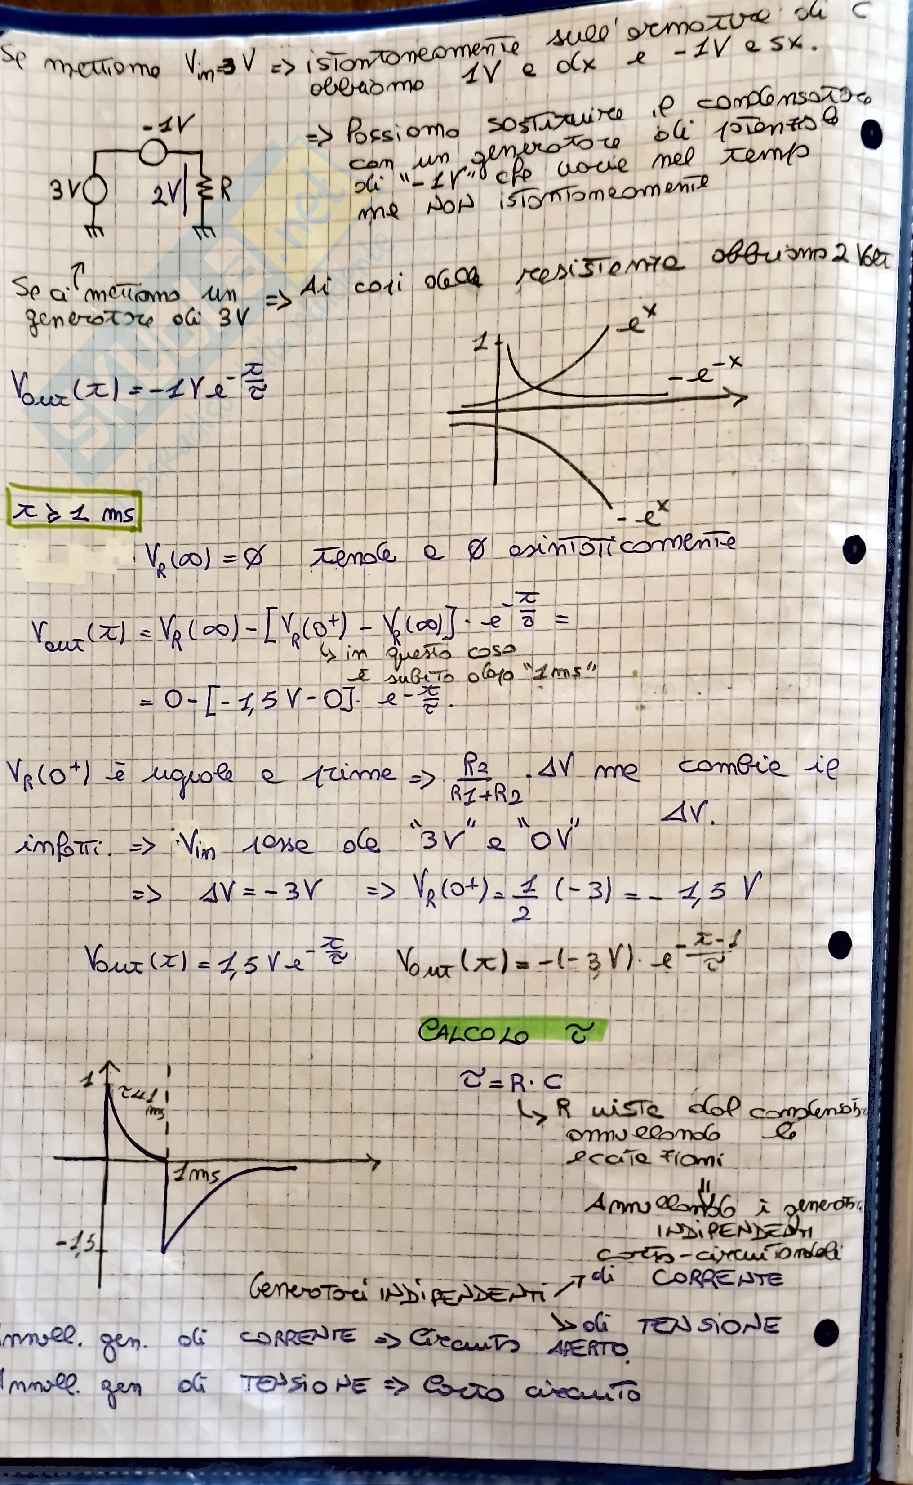 Se mettiamo Vin=3V => istantaneamente sull'armatura di C
abbiamo 1V a dx e -1V a sx.
=> Possiamo sostituire il condensatore
con un generatore di potenziale
di "-1V" che varia nel tempo
ma NON istantaneamente
-1V
3V
2V
R
Se ci mettiamo un
generatore di 3V
=> Ai capi della resistenza abbiamo 2 Volt
Vout(t) = -1V e^-t/τ
1
e^x
-e^-x
-e^x
t ≥ 1 ms
VR(∞) = Ø tende a Ø asintoticamente
Vout(t) = VR(∞) - [VR(0+) - VR(∞)] · e^-t/τ =
↳ in questo caso
è subito dopo "1ms"
= 0 - [-1,5V - 0] · e^-t/τ.
VR(0+) è uguale a prima => R2/(R1+R2) · ΔV ma cambia il
ΔV.
infatti => Vin passa da "3V" a "0V"
=> ΔV = -3V => VR(0+) = 1/2 (-3) = -1,5 V
Vout(t) = 1,5 V e^-t/τ Vout(t) = -(-3V) · e^-(t-1)/τ
CALCOLO τ
τ = R · C
↳ R vista dal condensat.
annullando le
eccitazioni
Annullando i generat.
INDIPENDENTI
corto-circuitandoli
1
τ<<1
ms
1ms
-1,5
Generatori INDIPENDENTI
di CORRENTE
di TENSIONE
Annull. gen. di CORRENTE => Circuito APERTO.
Annull. gen di TENSIONE => Corto circuito